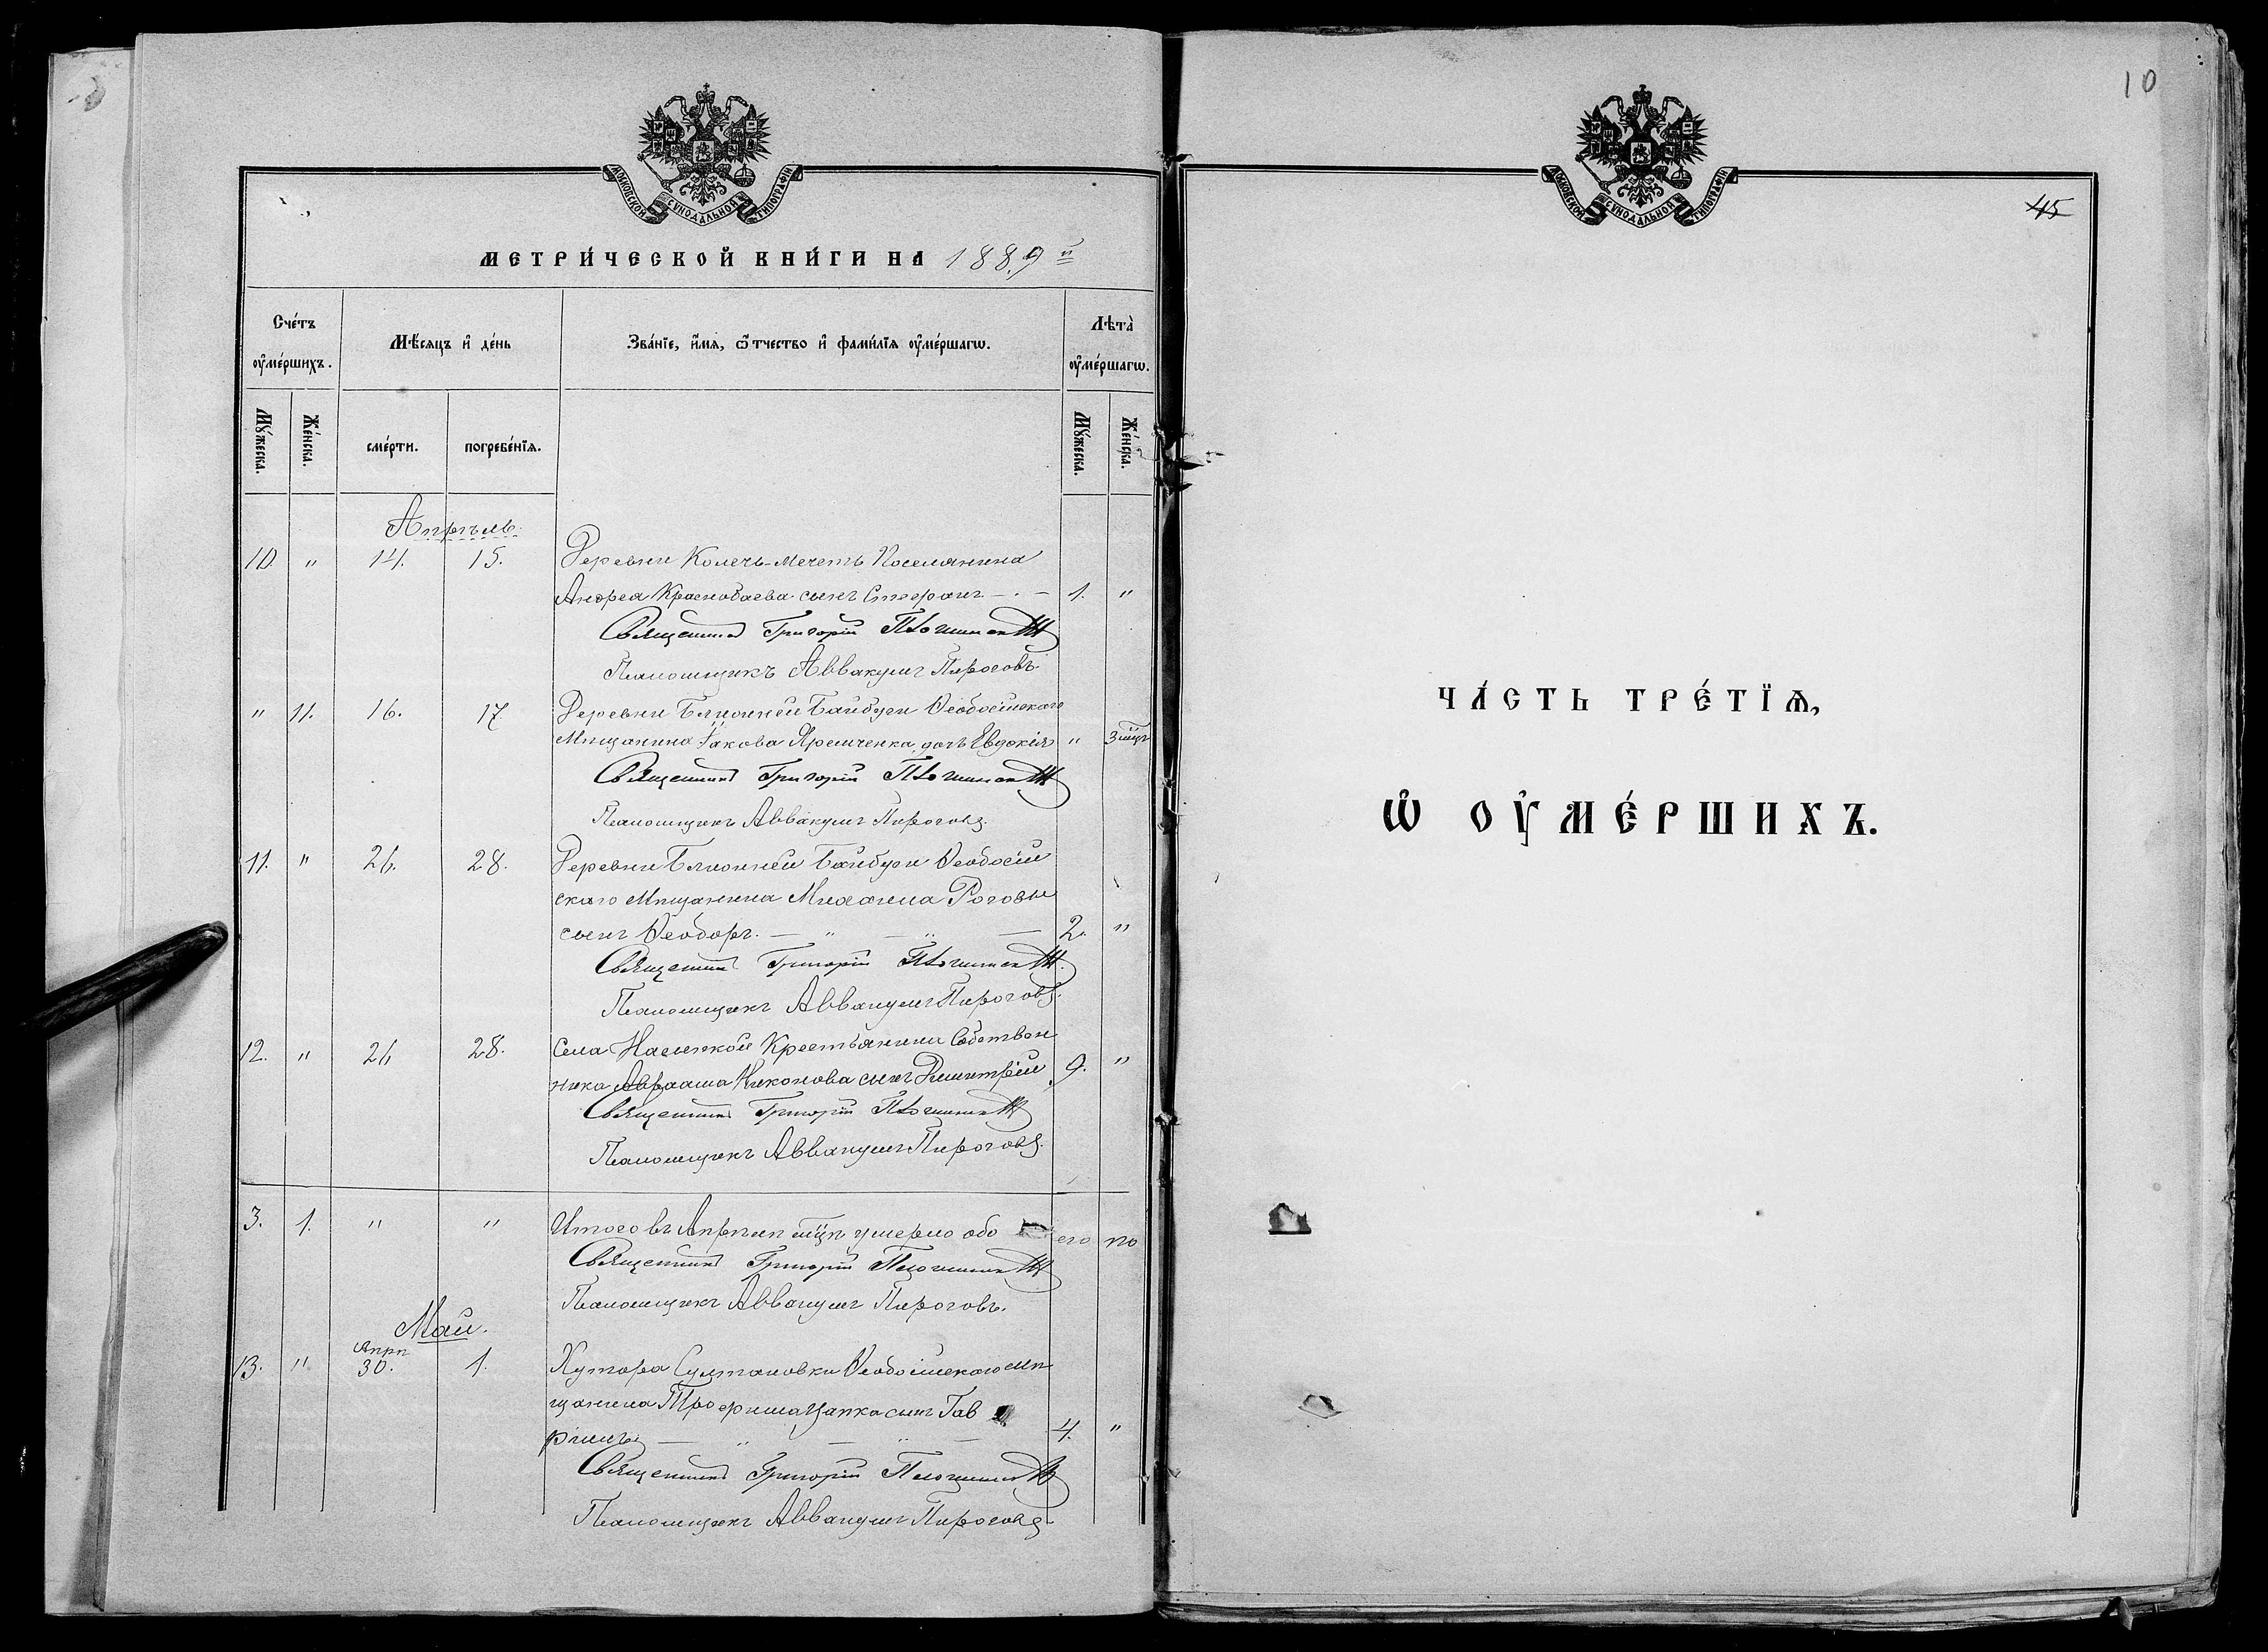 МОСКОВСКОЙ СѴНОДАЛЬНОЙ ТИПОГРАФІИ
МЕТРИ́ЧЕСКОЙ КНИ́ГИ НА 1889 й
Сче́тъ оу҆ме́ршихъ.
Мѣ́сяцъ и҆ де́нь
Зва́нїе, и҆́мѧ, ѻ҆́тчество и҆ фами́лїѧ оу҆ме́ршагѡ.
Лѣта̀ оу҆ме́ршагѡ.
Мꙋ́жеска.
Же́нска.
сме́рти.
погребе́нїѧ.
Мꙋ́жеска.
Же́нска.
Апрѣль.
10 " 14. 15. Деревни Колечь-Мечеть Поселянина
Андрея Краснобаева сынъ Стефанъ — 1. "
Священникъ Григорій
Псаломщикъ Аввакумъ Пироговъ.
" 11. 16. 17. Деревни Ближней Байбуги Ѳеодосійскаго
Мѣщанина Іакова Яремченка дочь Евдокія " 3 мѣц
Священникъ Григорій
Псаломщикъ Аввакумъ Пироговъ.
11. " 26. 28. Деревни Ближней Байбуги Ѳеодосій
скаго Мѣщанина Михаила Роговы
сынъ Ѳеодоръ. — " — " — 2. "
Священникъ Григорій
Псаломщикъ Аввакумъ Пироговъ.
12. " 26 28. Села Насыпкой Крестьянина Собствен
ника Авраама Никонова сынъ Димитрій 9. "
Священникъ Григорій
Псаломщикъ Аввакумъ Пироговъ.
3. 1. " " Итого въ Апрѣлѣ мѣцѣ умерло обо его по
Священникъ Григорій
Псаломщикъ Аввакумъ Пироговъ.
Май.
Апрѣ
13. " 30. 1. Хутора Султановки Ѳеодосійскаго мѣ
щанина Трофима Цапка сынъ Гав
ріилъ — " — " — 4. "
Священникъ Григорій
Псаломщикъ Аввакумъ Пироговъ
10
МОСКОВСКОЙ СѴНОДАЛЬНОЙ ТИПОГРАФІИ
45
ЧА́СТЬ ТРЕ́ТЇѦ,
Ѡ҆ ОУ҆МЕ́РШИХЪ.